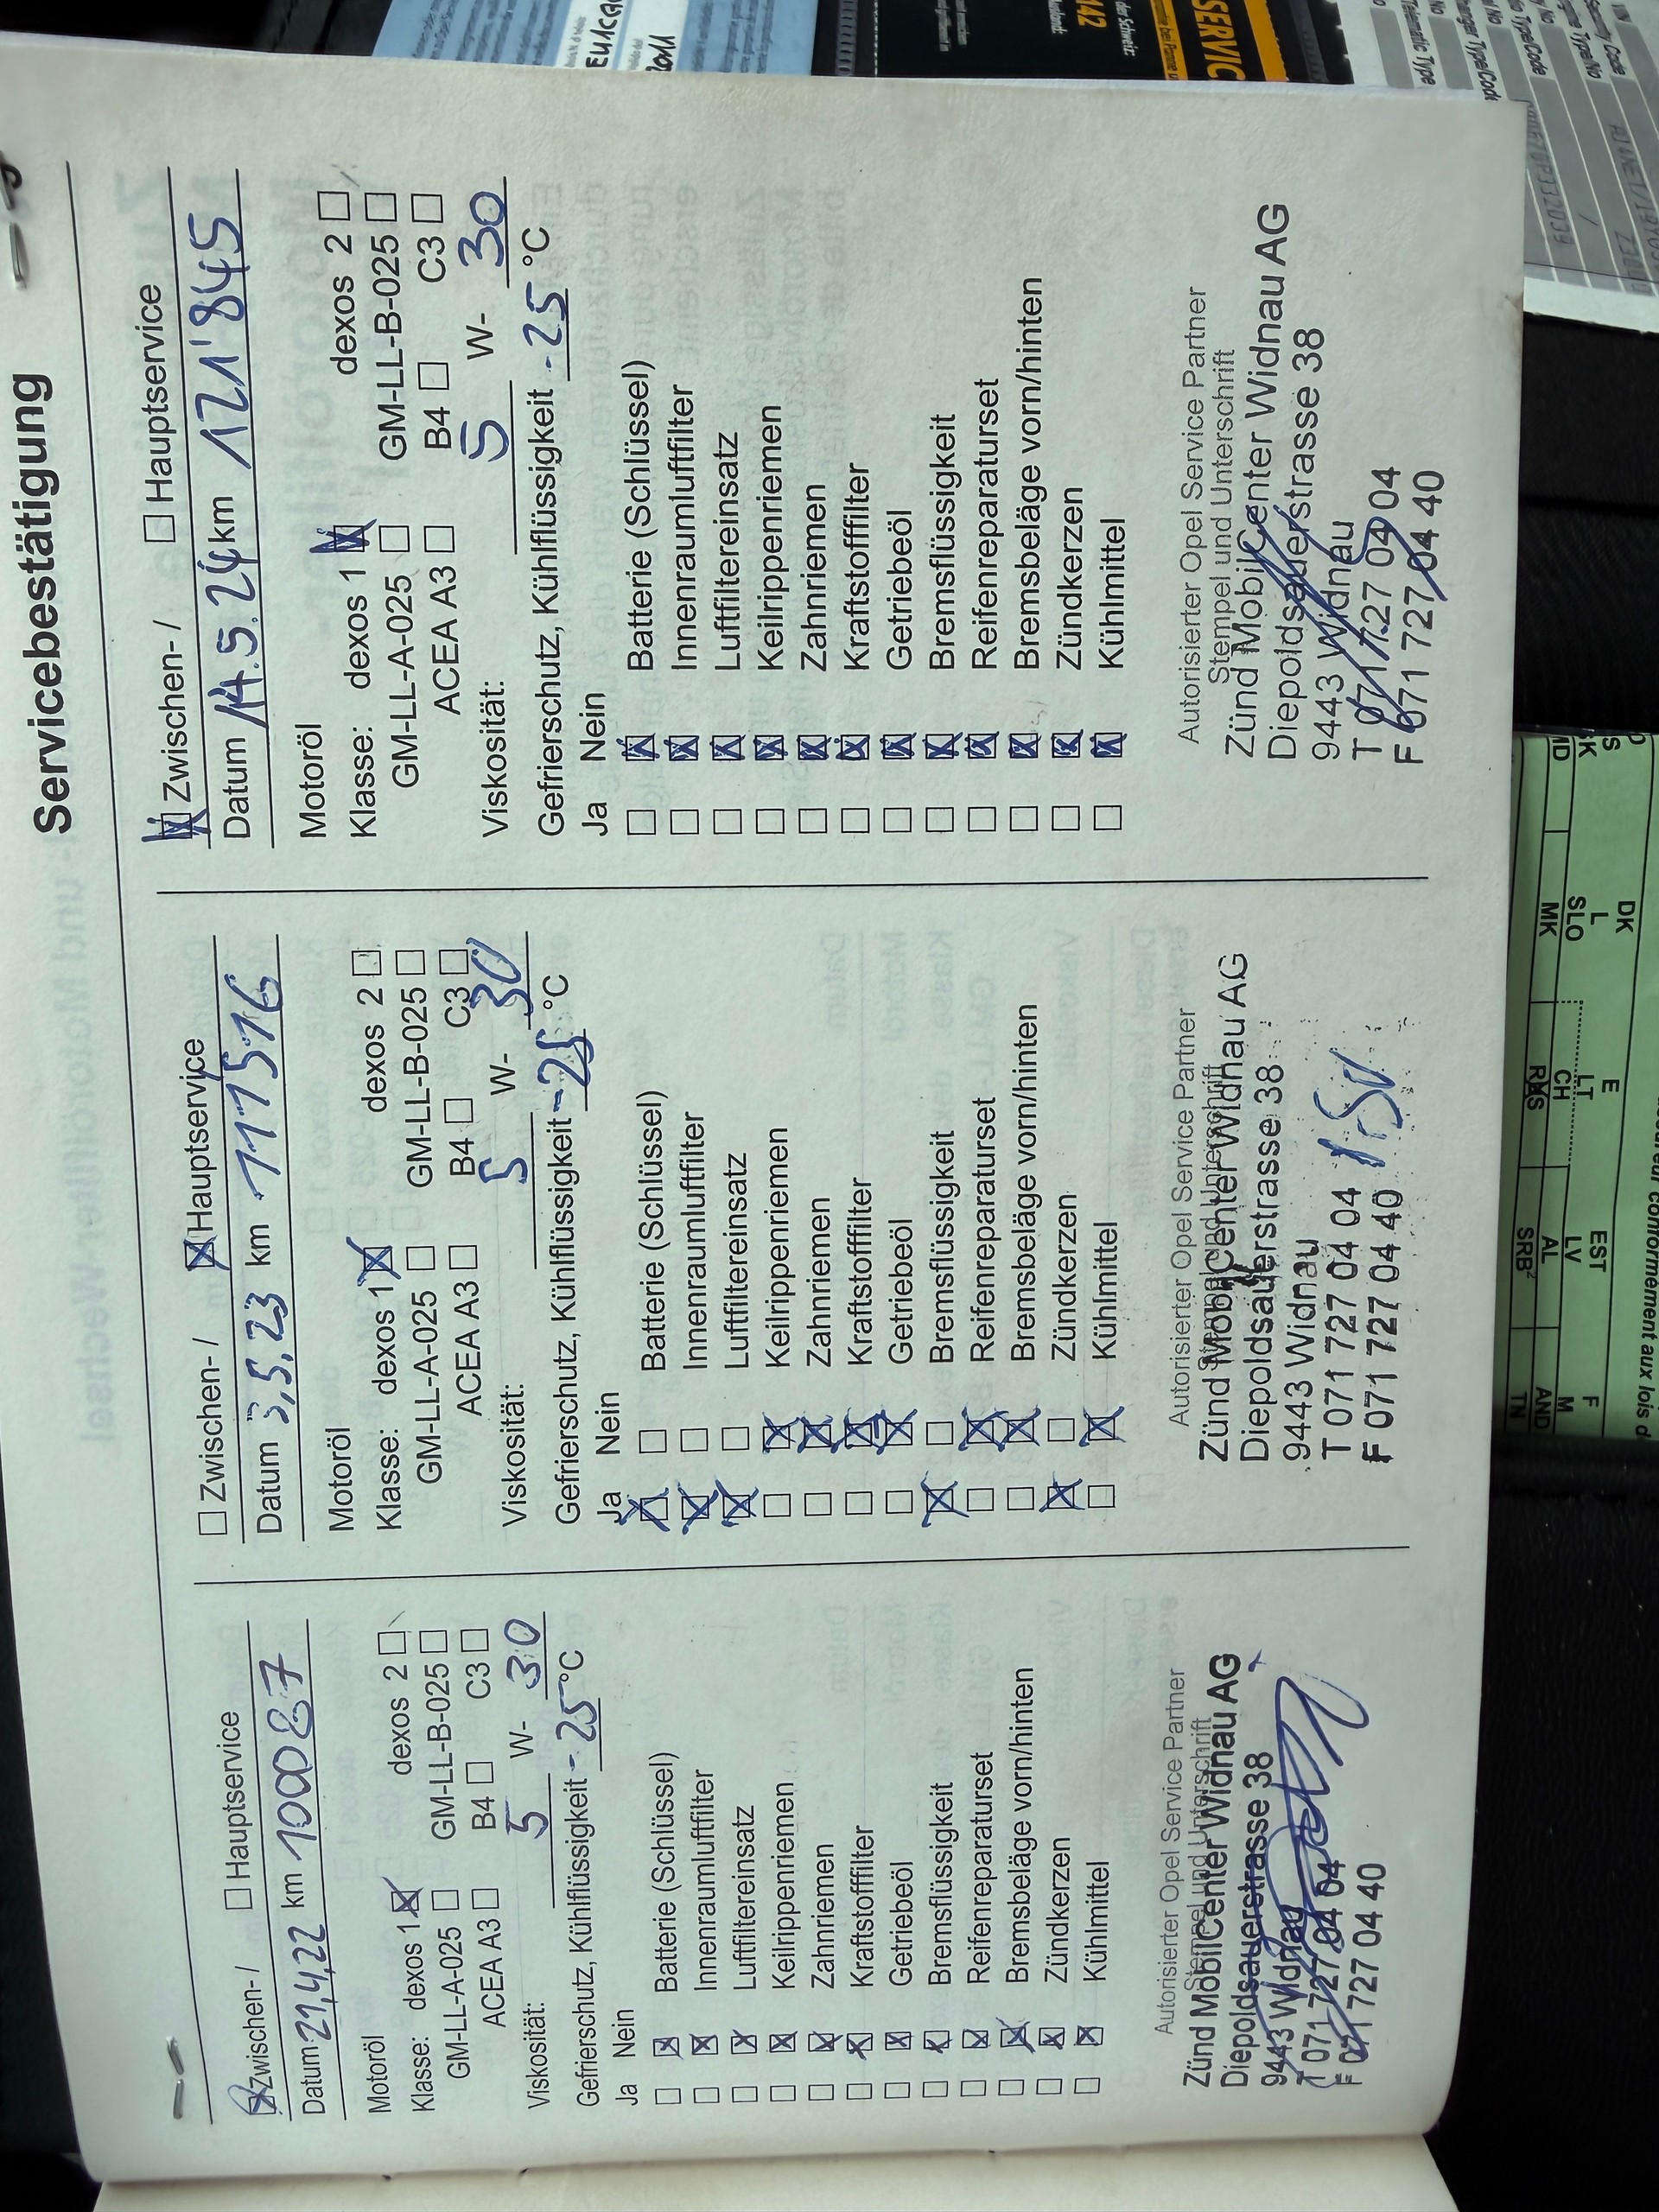 Servicebestätigung
Zwischen- / Hauptservice
Datum 21,4,22 km 100087
Motoröl
Klasse: dexos 1 dexos 2
GM-LL-A-025 GM-LL-B-025
ACEA A3 B4 C3
Viskosität: 5 W- 30
Gefrierschutz, Kühlflüssigkeit -25 °C
Ja Nein
Batterie (Schlüssel)
Innenraumluftfilter
Luftfiltereinsatz
Keilrippenriemen
Zahnriemen
Kraftstofffilter
Getriebeöl
Bremsflüssigkeit
Reifenreparaturset
Bremsbeläge vorn/hinten
Zündkerzen
Kühlmittel
Autorisierter Opel Service Partner
Stempel und Unterschrift
Zünd MobilCenter Widnau AG
Diepoldsauerstrasse 38
9443 Widnau
T 071 727 04 04
F 071 727 04 40
Zwischen- / Hauptservice
Datum 3,5,23 km 111516
Motoröl
Klasse: dexos 1 dexos 2
GM-LL-A-025 GM-LL-B-025
ACEA A3 B4 C3
Viskosität: 5 W- 30
Gefrierschutz, Kühlflüssigkeit -25 °C
Ja Nein
Batterie (Schlüssel)
Innenraumluftfilter
Luftfiltereinsatz
Keilrippenriemen
Zahnriemen
Kraftstofffilter
Getriebeöl
Bremsflüssigkeit
Reifenreparaturset
Bremsbeläge vorn/hinten
Zündkerzen
Kühlmittel
Autorisierter Opel Service Partner
Stempel und Unterschrift
Zünd MobilCenter Widnau AG
Diepoldsauerstrasse 38
9443 Widnau
T 071 727 04 04
F 071 727 04 40
Zwischen- / Hauptservice
Datum 14.5.24 km 121'845
Motoröl
Klasse: dexos 1 dexos 2
GM-LL-A-025 GM-LL-B-025
ACEA A3 B4 C3
Viskosität: 5 W- 30
Gefrierschutz, Kühlflüssigkeit -25 °C
Ja Nein
Batterie (Schlüssel)
Innenraumluftfilter
Luftfiltereinsatz
Keilrippenriemen
Zahnriemen
Kraftstofffilter
Getriebeöl
Bremsflüssigkeit
Reifenreparaturset
Bremsbeläge vorn/hinten
Zündkerzen
Kühlmittel
Autorisierter Opel Service Partner
Stempel und Unterschrift
Zünd MobilCenter Widnau AG
Diepoldsauerstrasse 38
9443 Widnau
T 071 727 04 04
F 071 727 04 40
SERVIC
142
DK
E L
EST LV LT SLO
F M AL CH MK
AND SRB² RUS
TN
conformément aux lois d